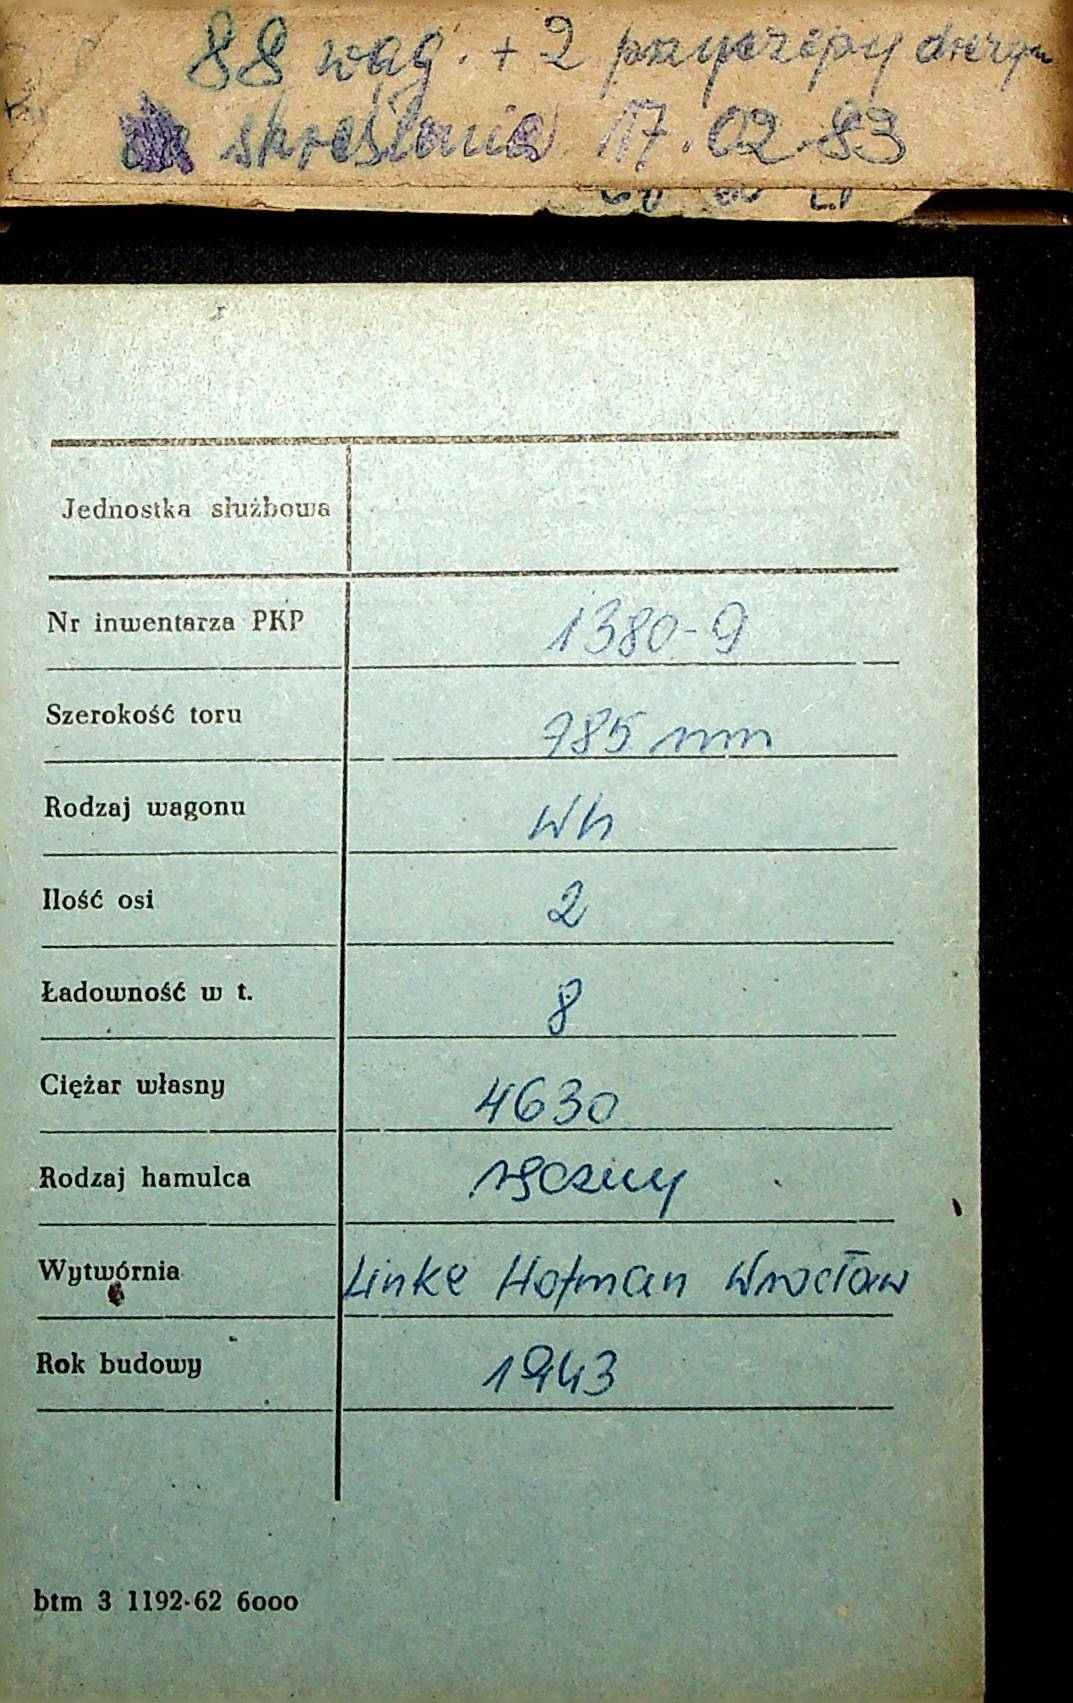 88 wag. + 2 przyczepy
skreślenia 17.02.83
Jednostka służbowa
Nr inwentarza PKP 1380-9
Szerokość toru 785 mm
Rodzaj wagonu Wh
Ilość osi 2
Ładowność w t. 8
Ciężar własny 4630
Rodzaj hamulca ręczny
Wytwórnia Linke Hofman Wrocław
Rok budowy 1943
btm 3 1192-62 6000